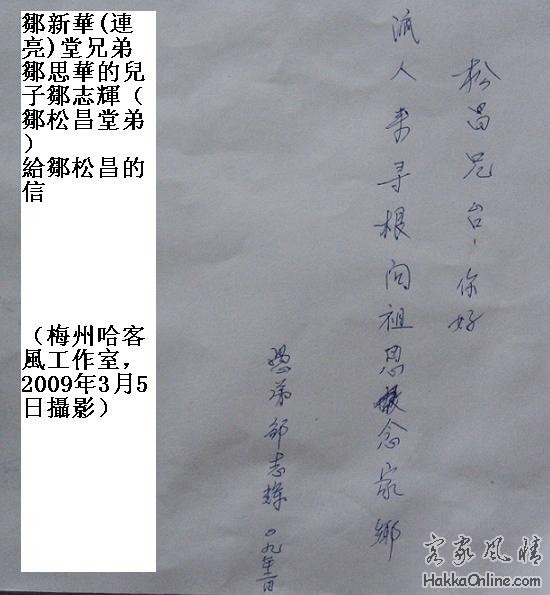 鄒新華(連
亮)堂兄弟
鄒思華的兒
子鄒志輝（
鄒松昌堂弟
）
給鄒松昌的
信
（梅州哈客
風工作室，
2009年3月5
日攝影）
松昌兄台，你好
流人来寻根问祖思念家鄉
愚弟邹志辉
客家風情
HakkaOnline.com